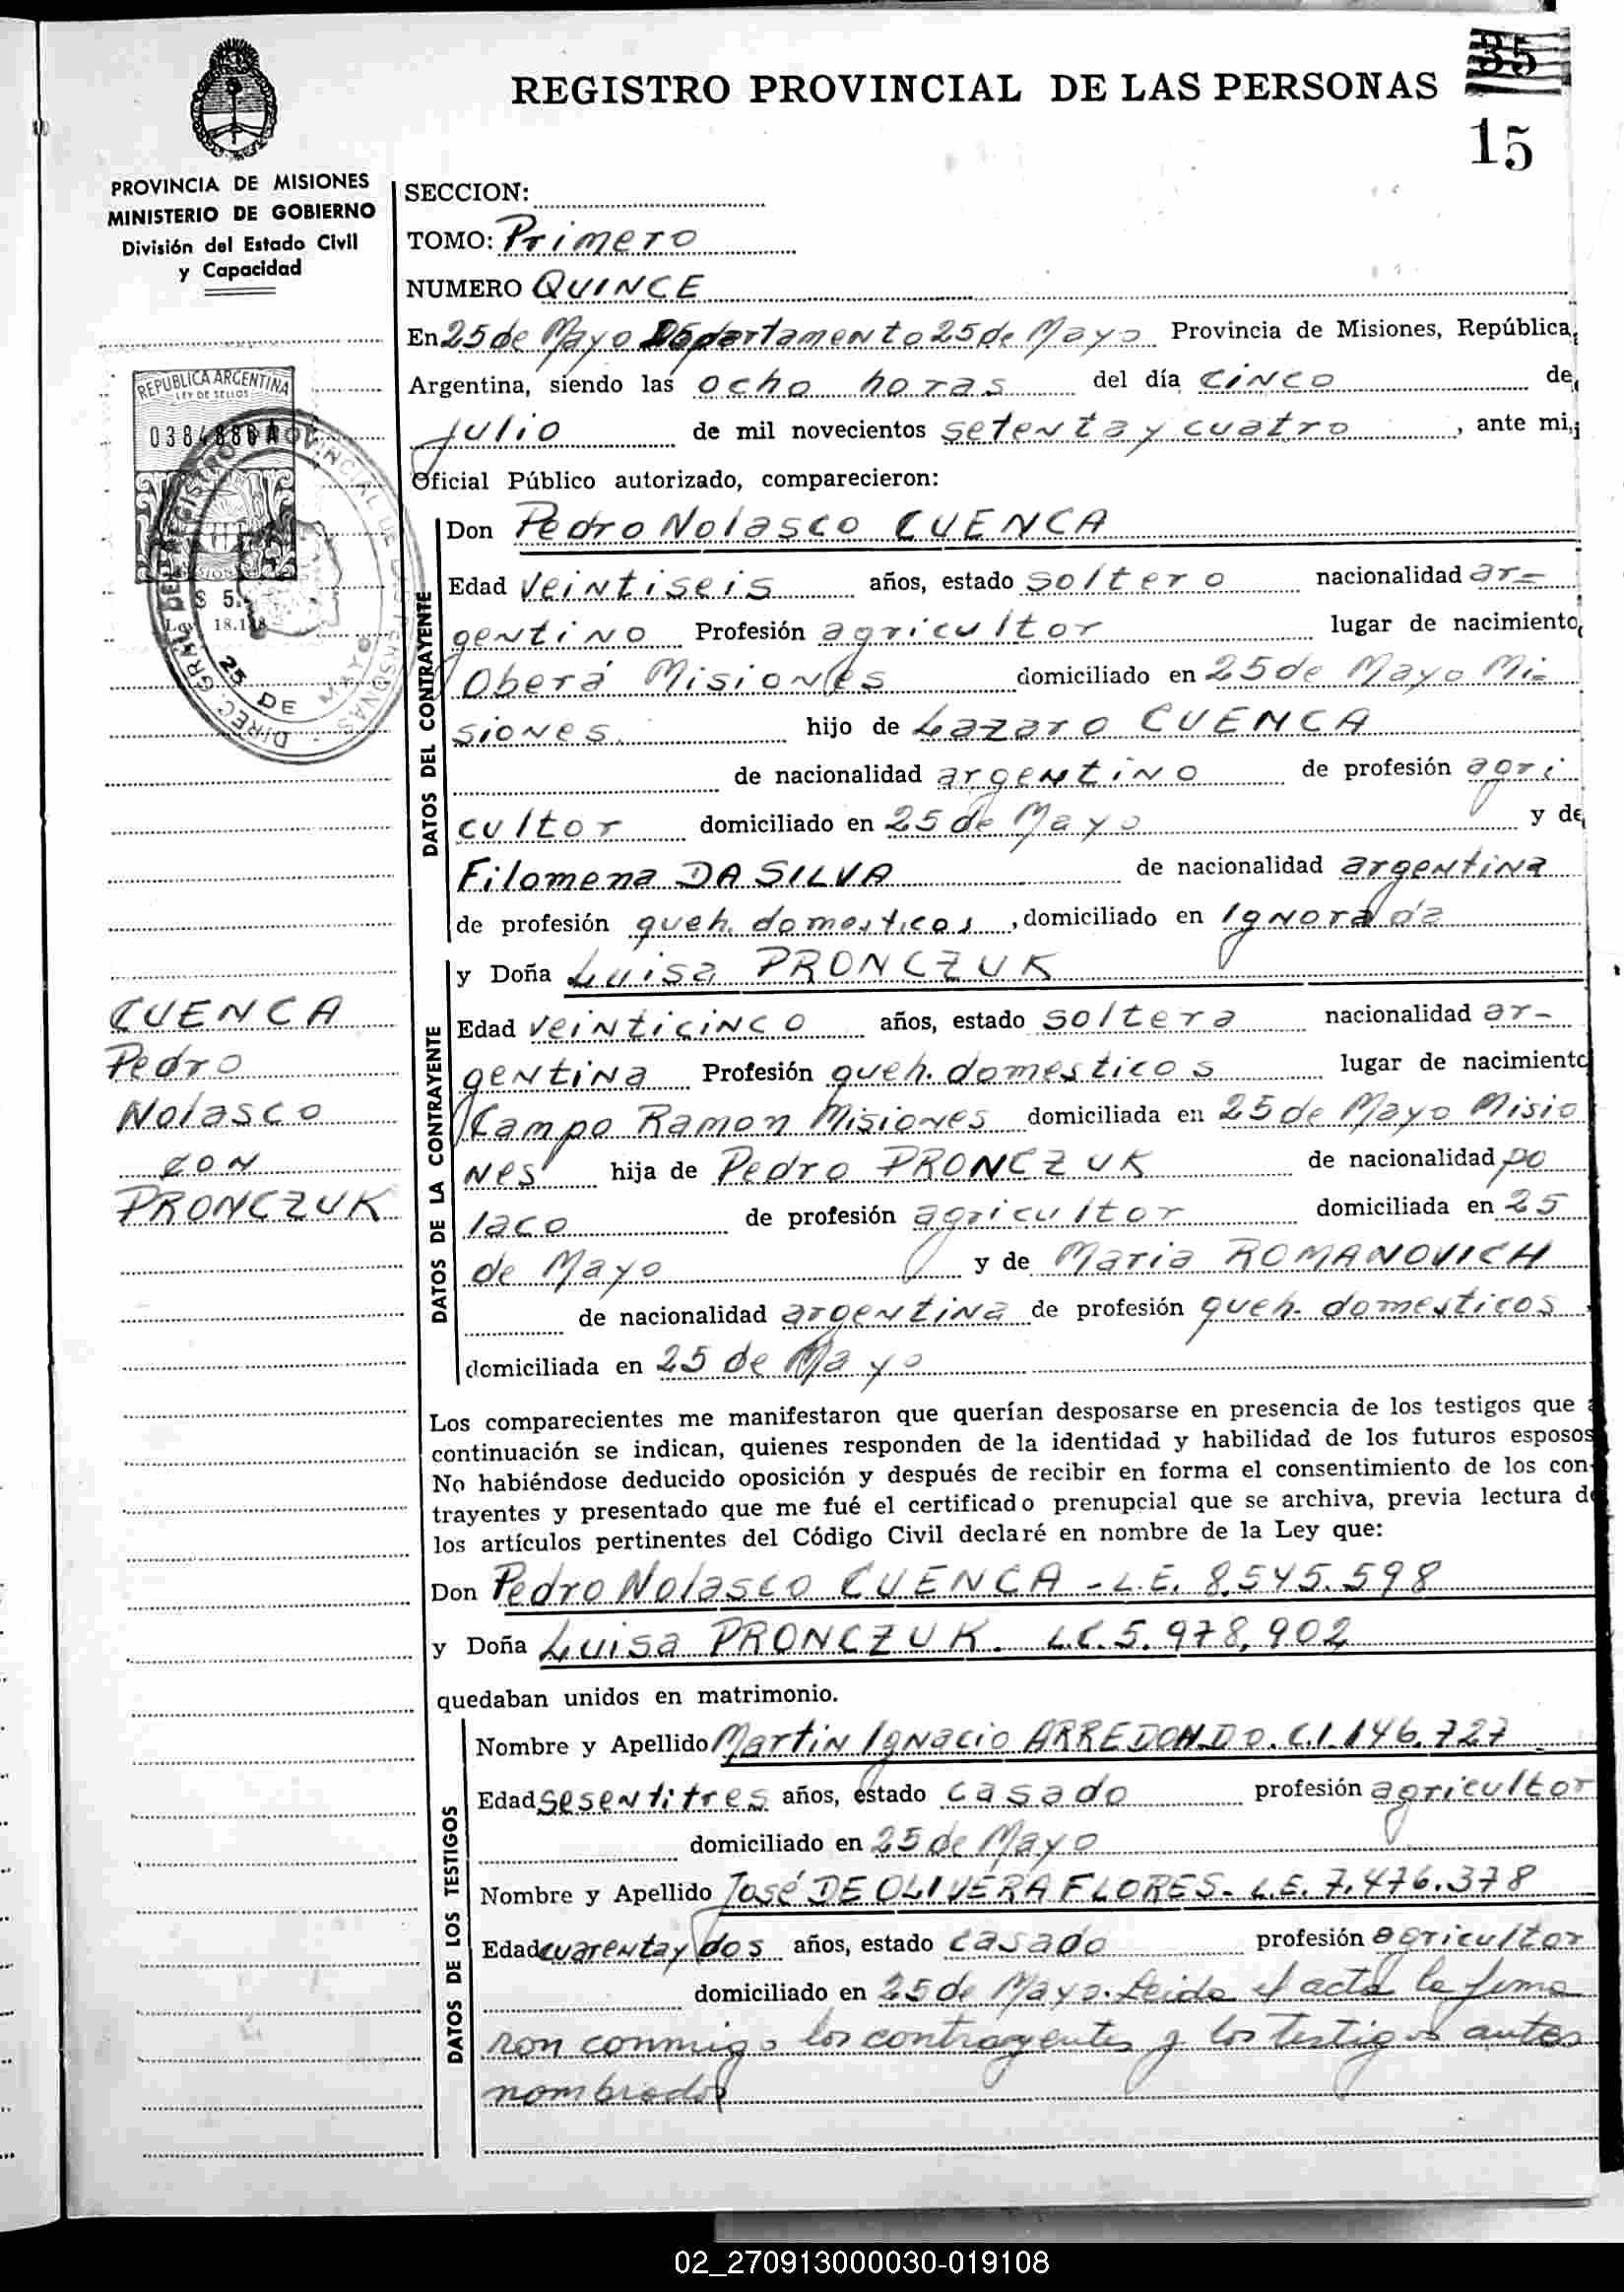 REGISTRO PROVINCIAL DE LAS PERSONAS
35
15
PROVINCIA DE MISIONES
MINISTERIO DE GOBIERNO
División del Estado Civil
y Capacidad
REPUBLICA ARGENTINA
LEY DE SELLOS
$ 5.
Ley 18.188
25 DE MAYO
CUENCA
Pedro
Nolasco
CON
PRONCZUK
SECCION:
TOMO: Primero
NUMERO QUINCE
En 25 de Mayo Departamento 25 de Mayo Provincia de Misiones, República
Argentina, siendo las ocho horas del día CINCO de
Julio de mil novecientos setenta y cuatro, ante mi,
Oficial Público autorizado, comparecieron:
DATOS DEL CONTRAYENTE
Don Pedro Nolasco CUENCA
Edad veintiseis años, estado soltero nacionalidad ar=
gentino Profesión agricultor lugar de nacimiento,
Oberá Misiones domiciliado en 25 de Mayo Mi=
siones. hijo de Lazaro CUENCA
de nacionalidad argentino de profesión agri
cultor domiciliado en 25 de Mayo y de
Filomena DA SILVA de nacionalidad argentina
de profesión queh. domesticos, domiciliado en Ignorada
DATOS DE LA CONTRAYENTE
y Doña Luisa PRONCZUK
Edad veinticinco años, estado soltera nacionalidad ar-
gentina Profesión queh. domesticos lugar de nacimiento
Campo Ramon Misiones domiciliada en 25 de Mayo Misio
nes hija de Pedro PRONCZUK de nacionalidad po
laco de profesión agricultor domiciliada en 25
de Mayo y de Maria ROMANOVICH
de nacionalidad argentina de profesión queh. domesticos
domiciliada en 25 de Mayo
Los comparecientes me manifestaron que querían desposarse en presencia de los testigos que a
continuación se indican, quienes responden de la identidad y habilidad de los futuros esposos
No habiéndose deducido oposición y después de recibir en forma el consentimiento de los con-
trayentes y presentado que me fué el certificado prenupcial que se archiva, previa lectura de
los artículos pertinentes del Código Civil declaré en nombre de la Ley que:
Don Pedro Nolasco CUENCA - L.E. 8.545.598
y Doña Luisa PRONCZUK. L.C. 5.978.902
quedaban unidos en matrimonio.
DATOS DE LOS TESTIGOS
Nombre y Apellido Martin Ignacio ARREDONDO. C.I. 146.727
Edad sesentitres años, estado casado profesión agricultor
domiciliado en 25 de Mayo
Nombre y Apellido José DE OLIVERA FLORES. L.E. 7.476.378
Edad cuarenta y dos años, estado casado profesión agricultor
domiciliado en 25 de Mayo. Leida el acta la firma
ron conmigo los contrayentes y los testigos antes
nombrados
02_270913000030-019108